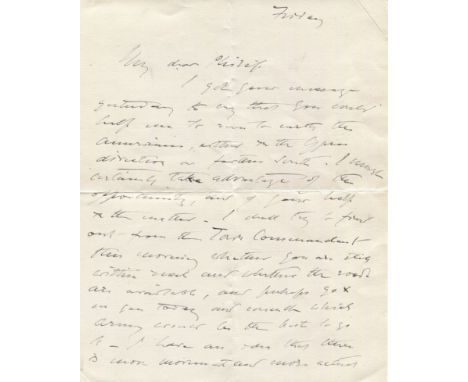 Friday
My dear Philip,
I got your message
yesterday to say that you could
help me to run to earth the
Armenians, either in the Ypres
direction or further South. I must
certainly take advantage of the
opportunity, and of your help
in the matter. I shall try to find
out from the Town Commandant
this morning whether you are still
within reach and whether the roads
are available, and perhaps go
on you today and consult which
Army would be the best to go
to – I have an idea that there
is more movement and more actual